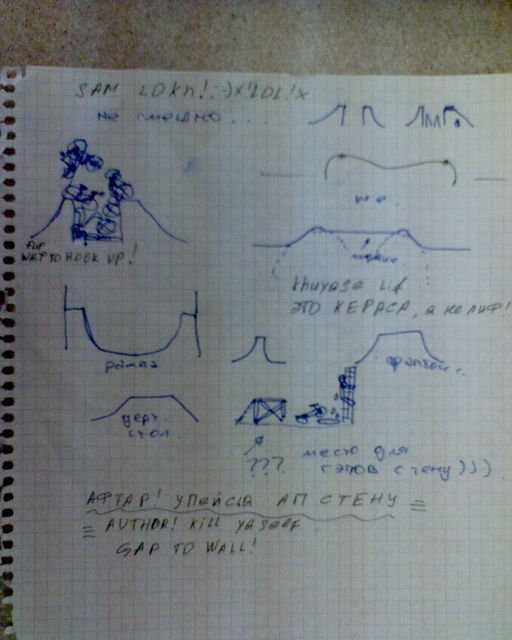 SAM LOKh!;-)x!LOL!x
не смешно...
WHIP TO HOOK UP!
khuyasa lif
ЭТО КЕРАСА, а не лиф!
рампа
дерт.
стол.
???
место для
гэпов стену)))
АФТАР! УПЕЙСЯ АП СТЕНУ =
= AUTHOR! Kill YaSelf
GAP TO WALL!